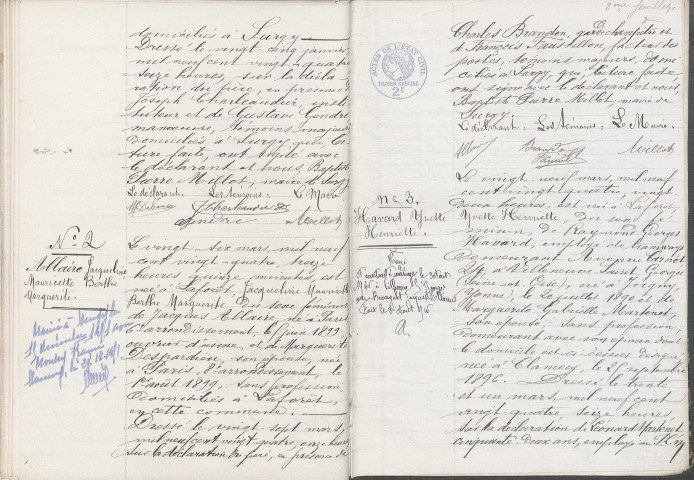 domiciliés à Surgy
Dressé le vingt cinq janvier
mil neuf cent vingt-quatre
seize heures, sur la décla-
ration du père, en présence de
Joseph Charlaudier, insti-
tuteur et de Gustave Gendre
manœuvre, témoins majeurs
domiciliés à Surgy, qui, lec-
ture faite, ont signé avec
le déclarant et nous, Baptiste
Pierre Millot, maire de Surgy
Le déclarant. Les témoins. Le Maire.
Gendre Millot
No 2
Allaire Jacqueline
Mauricette Berthe
Marguerite.
Le vingt-six mars, mil neuf
cent vingt-quatre, treize
heures quinze minutes, est
née à Laforêt, Jacqueline Mauricette
Berthe Marguerite du sexe féminin
de Jacques Allaire, né à Paris
arrondissement, le 1er juin 1899
ouvrier d'usine, et de Marguerite
Despardieu, son épouse, née
à Paris, arrondissement, le
1er août 1899, sans profession,
domiciliés à Laforêt,
en cette commune.
Dressé le vingt-sept mars,
mil neuf cent vingt-quatre, onze heures
sur la déclaration du père, en présence de
2me feuillet
Charles Brandon, garde champêtre et
de François, facteur des
postes, témoins majeurs, domi-
ciliés à Surgy, qui, lecture faite,
ont signé avec le déclarant et nous,
Baptiste Pierre Millot, maire de
Surgy
Le déclarant: Les témoins: Le Maire.
Brandon Millot
ACTES DE L'ETAT CIVIL
PAPIER SPECIAL
2F
No 3.
Havard Yvette
Henriette.
Le vingt neuf mars, mil neuf
cent vingt quatre, vingt
deux heures, est née à Laforêt
Yvette Henriette, du sexe fé-
minin, de Raymond Georges
Havard, employé de tramways
demeurant Avenue Carnot
à Villeneuve Saint Georges
(Seine et Oise), né à Joigny
(Yonne), le 20 juillet 1896 et de
Marguerite Gabrielle Martenot
son épouse, sans profession
demeurant avec son époux dont
le domicile est ci-dessus désigné
née à Clamecy, le 25 septembre
1896. Dressé le trente
et un mars, mil neuf cent
vingt quatre, seize heures,
sur la déclaration de Léonard Martenot
cinquante deux ans, employé au